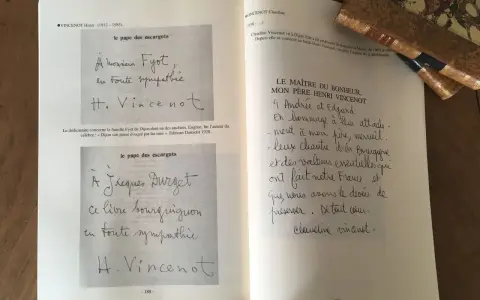 ● VINCENOT Henri (1912 - 1985)
le pape des escargots
À monsieur Fyot,
en toute sympathie
H. Vincenot
le pape des escargots
À Jacques Durget
ce livre bourguignon
en toute sympathie
H. Vincenot
VINCENOT Claudine
LE MAÎTRE DU BONHEUR,
MON PÈRE HENRI VINCENOT
À Andrée et Edgard
En hommage à leur attache-
ment à mon père, merveil-
leux chantre d'une Bourgogne
et des valeurs essentielles qui
ont fait notre France et
que nous avons le devoir de
préserver. De tout cœur.
Claudine Vincenot